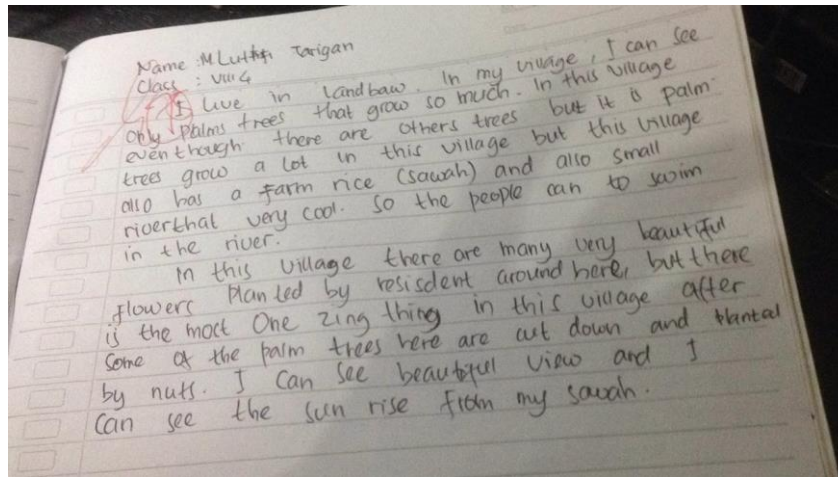 Name : M Luthfi Tarigan
Class : VIII 4
I live in Landbaw. In my village, I can see
only palms trees that grow so much. In this village
even though there are others trees but it is palm
trees grow a lot in this village but this village
also has a farm rice (sawah) and also small
riverthat very cool. So the people can to swim
in the river.
In this village there are many very beautiful
flowers planted by resisdent around here, but there
is the most One zing thing in this village after
some of the palm trees here are cut down and plantal
by nuts. I can see beautiful view and I
can see the sun rise from my sawah.